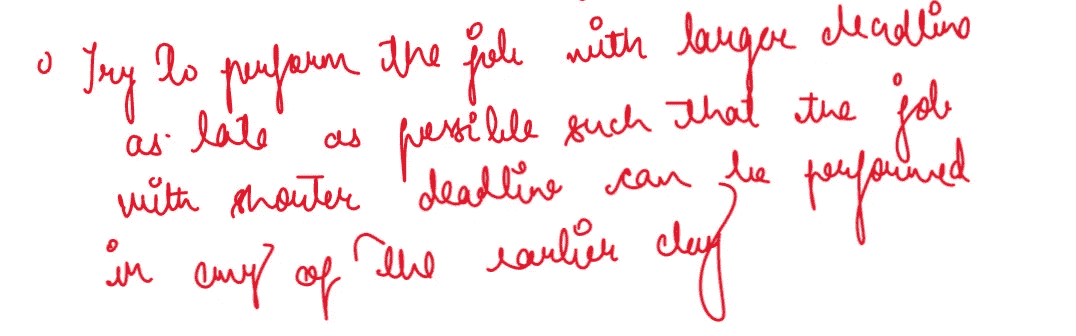 o Try to perform the job with larger deadline
as late as possible such that the job
with shorter deadline can be performed
in any of the earlier day